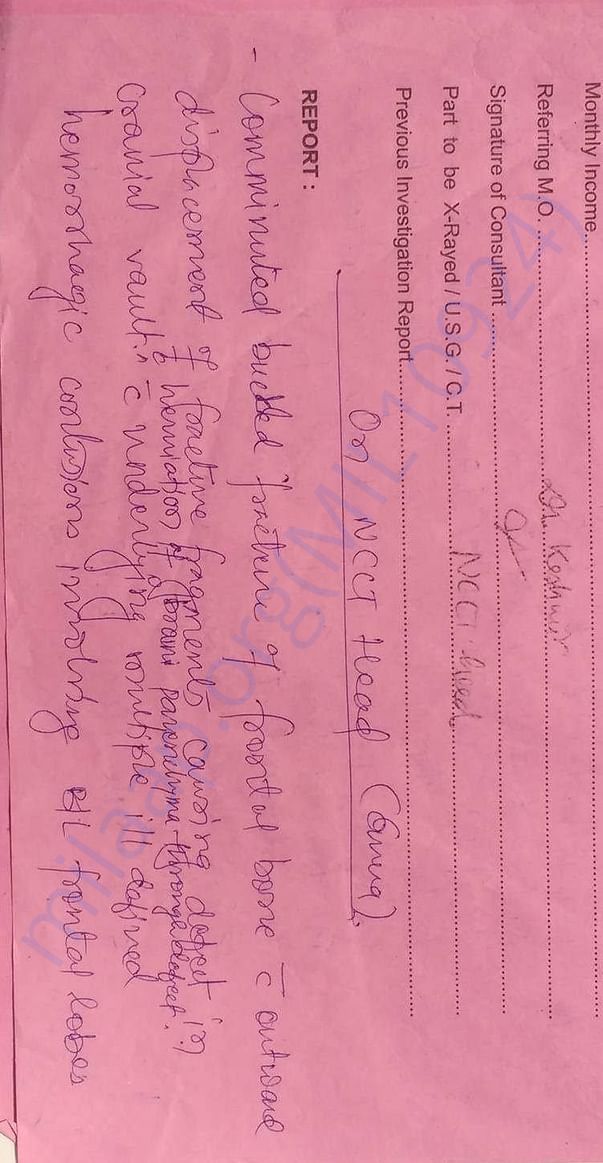 Monthly Income
Referring M.O. Dr. Keshav
Signature of Consultant
Part to be X-Rayed / U.S.G / C.T. NCCT head
Previous Investigation Report
On NCCT Head
REPORT :
- Comminuted fracture of frontal bone c̄ outward
displacement of fracture fragments causing defect in
c̄ herniation of brain parenchyma through defect.
cranial vault c̄ underlying multiple ill defined
hemorrhagic contusions involving B/L frontal lobes
milaap.org(MIL10924)